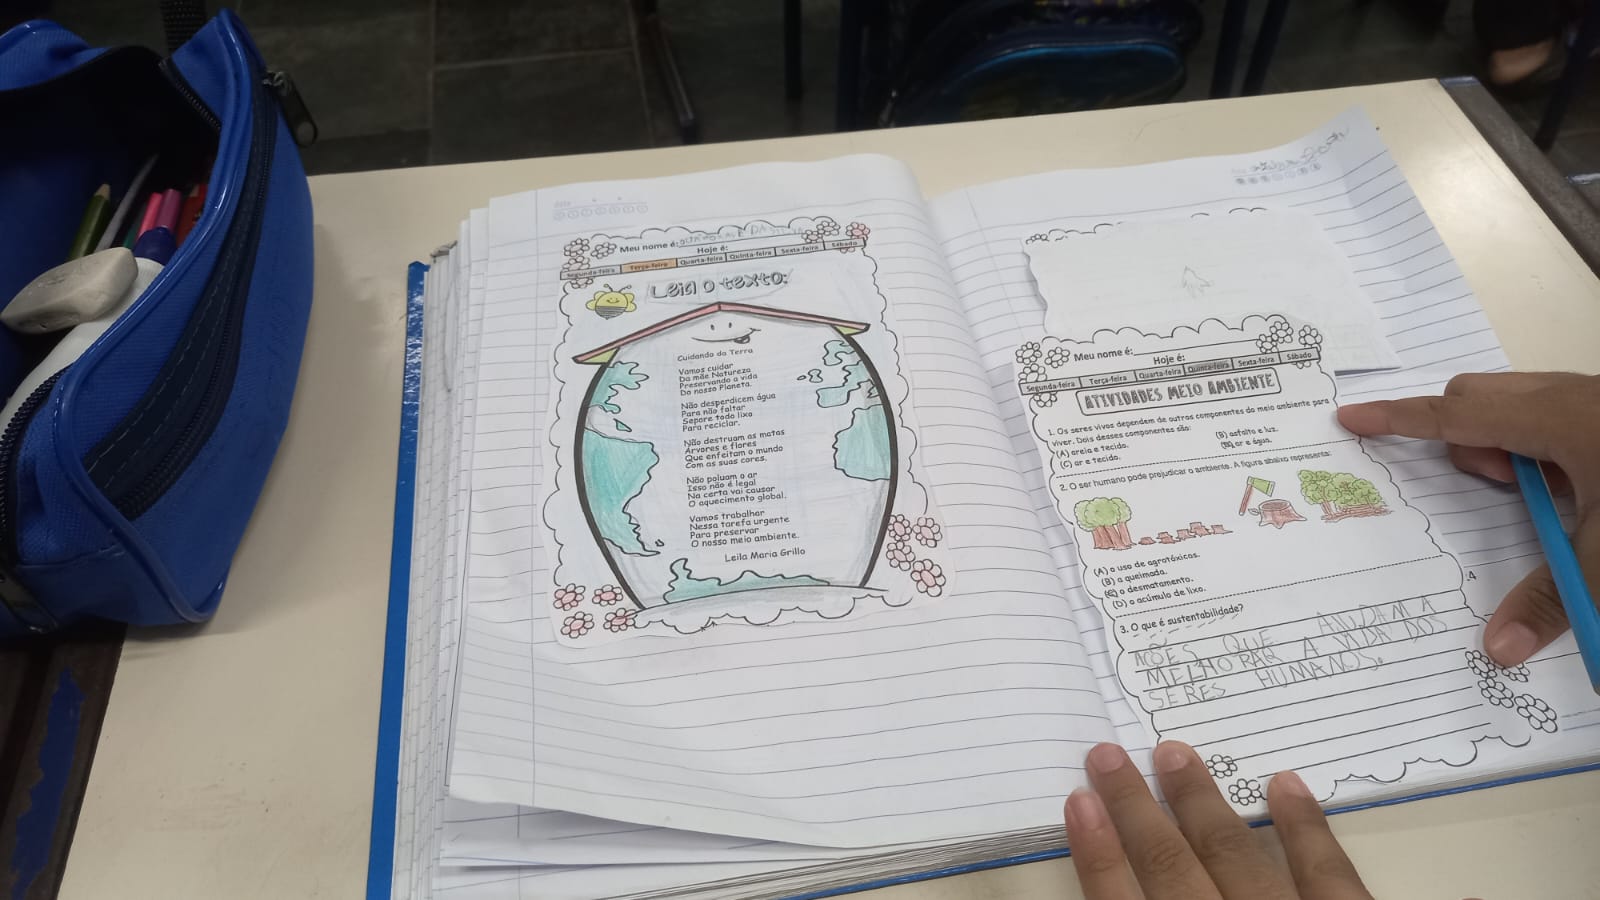 Meu nome é:
Hoje é:
Segunda-feira Terça-feira Quarta-feira Quinta-feira Sexta-feira Sábado
Leia o texto:
Cuidando da Terra
Vamos cuidar
Da mãe Natureza
Preservando a vida
Do nosso Planeta.
Não desperdicem água
Para não faltar
Separe todo lixo
Para reciclar.
Não destruam as matas
Árvores e flores
Que enfeitam o mundo
Com as suas cores.
Não poluam o ar
Isso não é legal
Na certa vai causar
O aquecimento global.
Vamos trabalhar
Nessa tarefa urgente
Para preservar
O nosso meio ambiente.
Leila Maria Grillo
Meu nome é:
Hoje é:
Segunda-feira Terça-feira Quarta-feira Quinta-feira Sexta-feira Sábado
ATIVIDADES MEIO AMBIENTE
1. Os seres vivos dependem de outros componentes do meio ambiente para
viver. Dois desses componentes são:
(A) areia e tecido. (B) asfalto e luz.
(C) ar e tecido. (D) ar e água.
2. O ser humano pode prejudicar o ambiente. A figura abaixo representa:
(A) o uso de agrotóxicos.
(B) a queimada.
(C) o desmatamento.
(D) o acúmulo de lixo.
3. O que é sustentabilidade?
AÇÕES QUE AJUDAM A
MELHORAR A VIDA DOS
SERES HUMANOS.